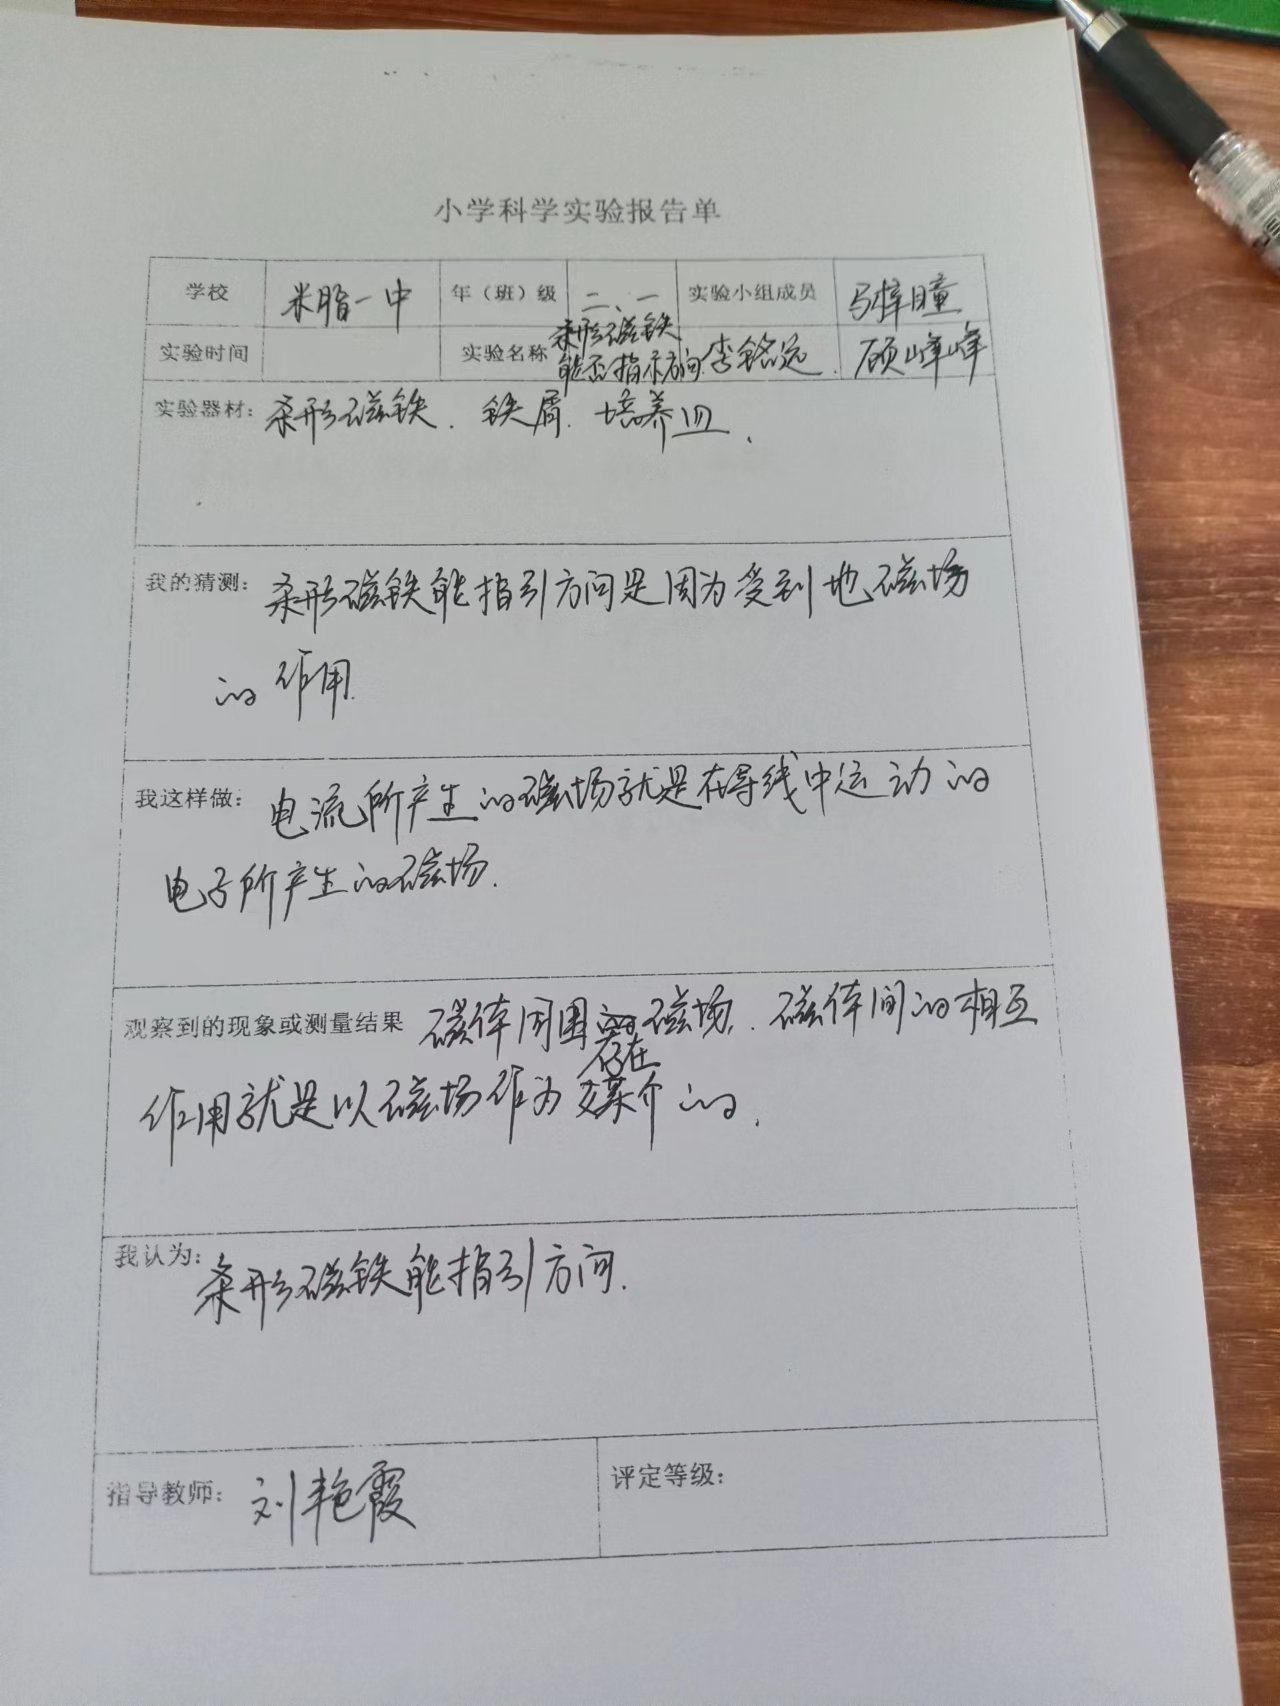 小学科学实验报告单
学校 米脂一中 年(班)级 二、一 实验小组成员 马梓瞳
实验时间 实验名称 条形磁铁 李铭远. 顾峰峰
能否指示方向
实验器材: 条形磁铁. 铁屑. 培养皿、
我的猜测: 条形磁铁能指引方向是因为受到地磁场
的作用.
我这样做: 电流所产生的磁场就是在导线中运动的
电子所产生的磁场.
观察到的现象或测量结果 磁体周围存在磁场. 磁体间的相互
作用就是以磁场作为媒介的.
我认为: 条形磁铁能指引方向.
指导教师: 刘艳霞 评定等级: